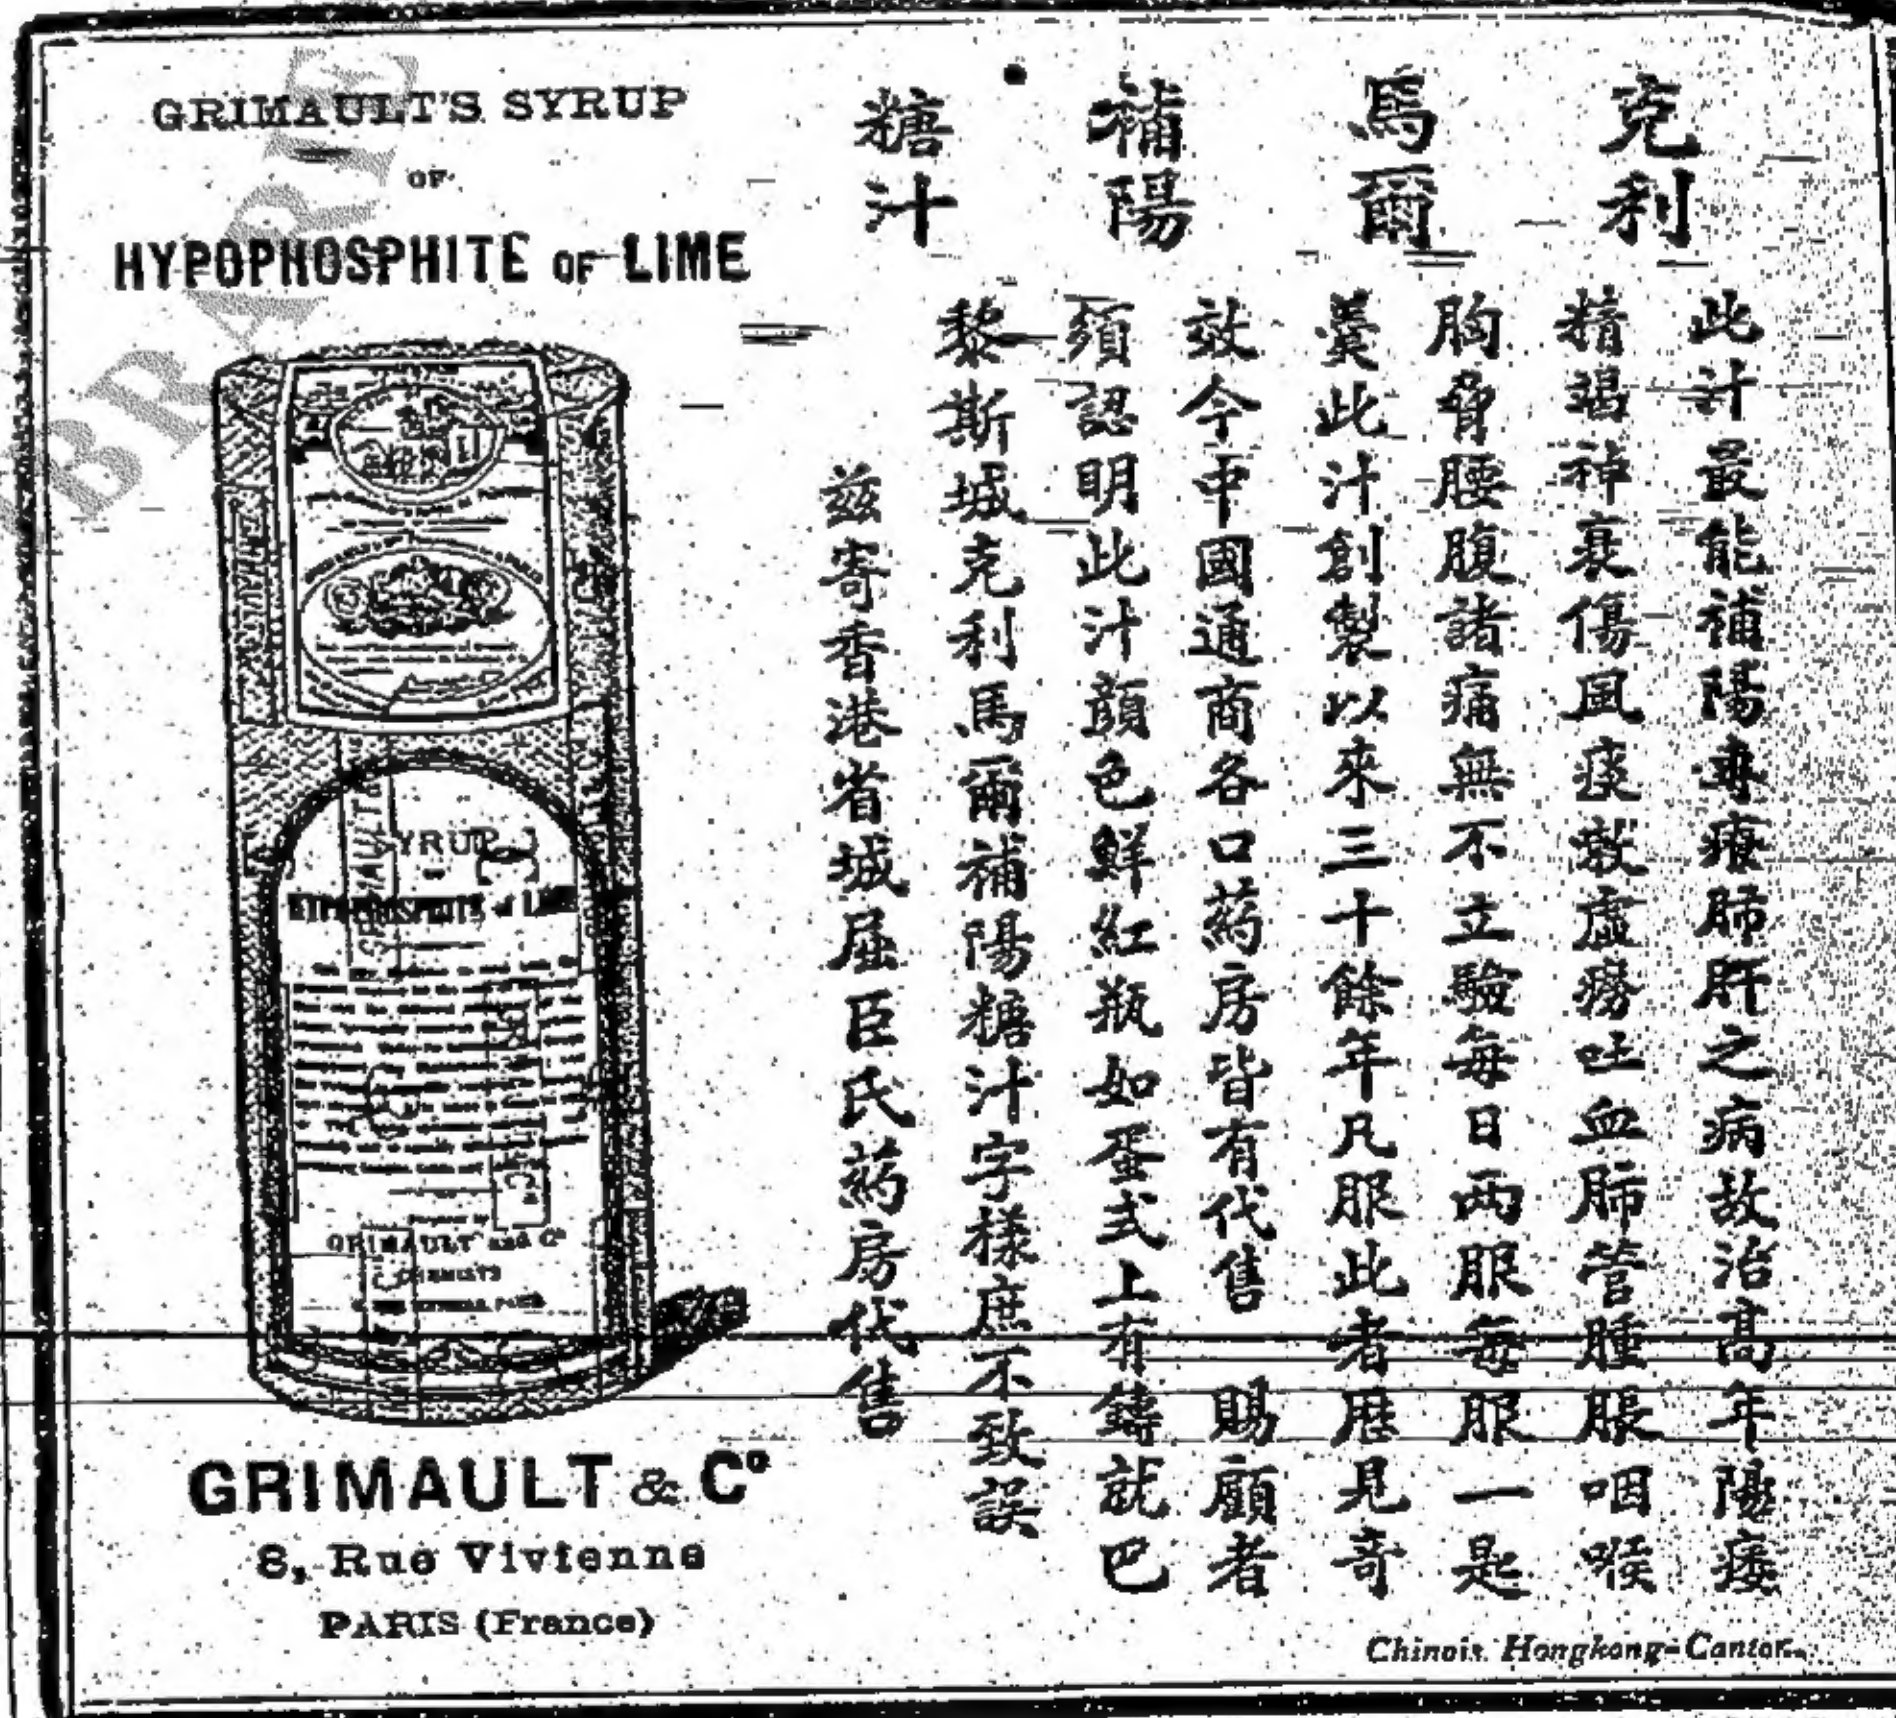 GRIMAULT'S SYRUP
OF
HYPOPHOSPHITE OF LIME
SYRUP
HYPOPHOSPHITE of LIME
GRIMAULT and Cº
CHEMISTS
GRIMAULT & Cº
8, Rue Vivienne
PARIS (France)
克利
馬爾
補陽
糖汁
此汁最能補陽專療肺肝之病故治高年陽痿
精竭神衰傷風痰欬虛癆吐血肺管腫脹咽喉
胸脅腰腹諸痛無不立驗每日兩服每服一匙
羹此汁創製以來三十餘年凡服此者歷見奇
效今中國通商各口葯房皆有代售 賜顧者
須認明此汁顏色鮮紅瓶如蛋式上有鑄就巴
黎斯城克利馬爾補陽糖汁字樣庶不致誤
茲寄香港省城屈臣氏葯房代售
Chinois Hongkong-Canton